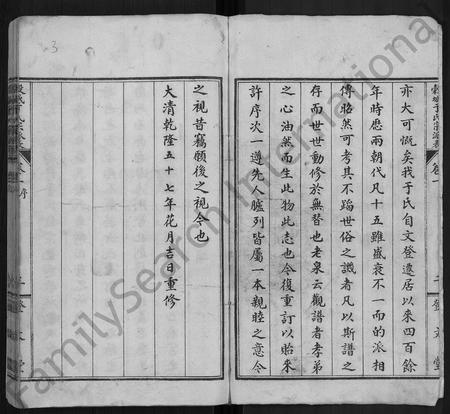 亦大可慨矣我于氏自文登遷居以來四百餘
年時歷兩朝代凡十五雖盛衰不一而的派相
傳昭然可考其不蹈世俗之譏者凡以斯譜之
存而世世動移於無替也老泉云觀譜者孝弟
之心油然而生此物此志也今復重訂以貽來
許序次一遵先人臚列皆屬一本親睦之意今
之視昔竊願後之視今也
大清乾隆五十七年花月吉日重修
3
FamilySearch International